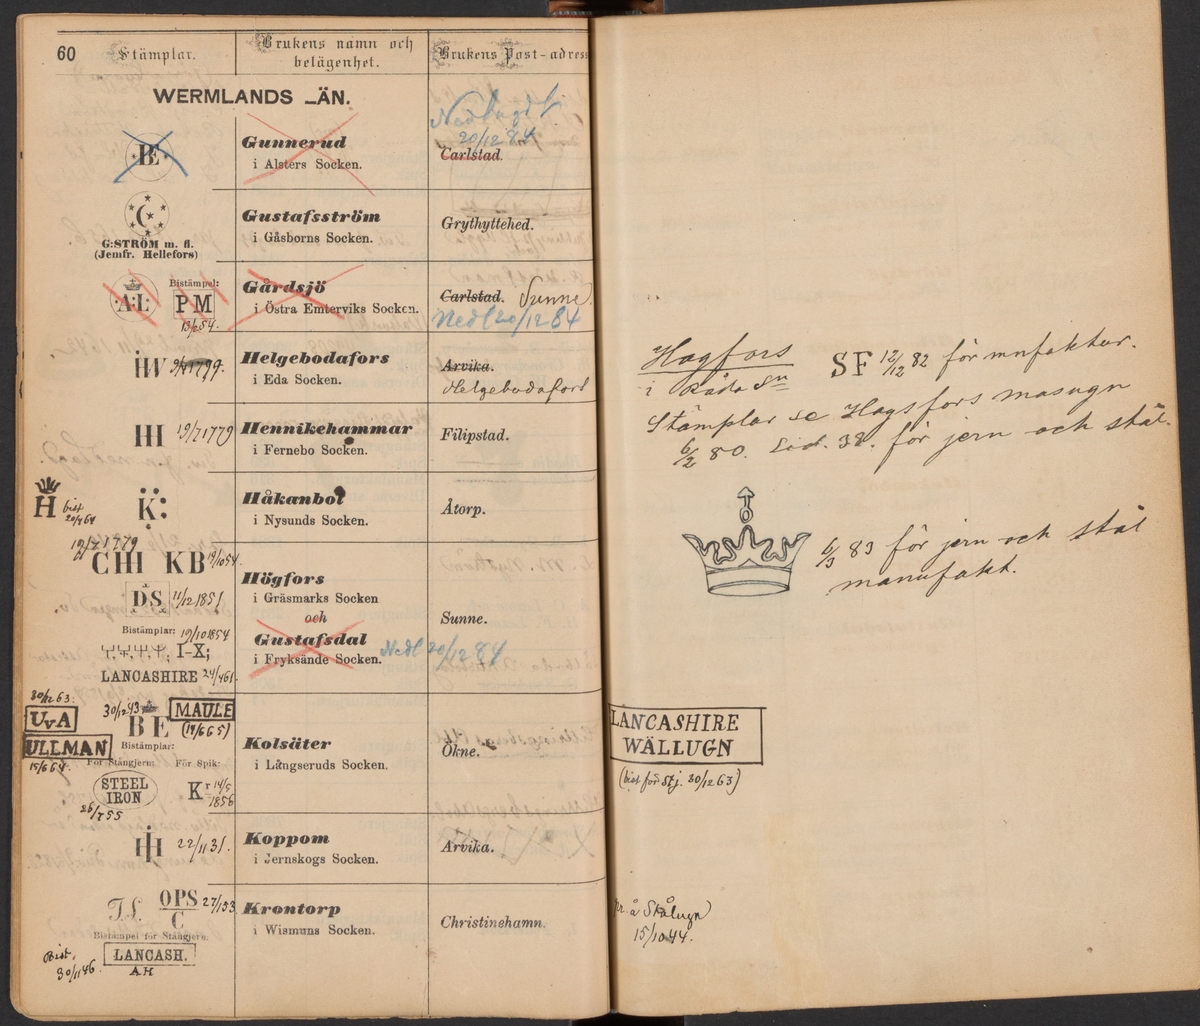 60
Stämplar.
Brukens namn och belägenhet.
Brukens Post-adress
WERMLANDS LÄN.
BE
Gunnerud
i Alsters Socken.
Nedlagdt
20/12 84
Carlstad.
G:STRÖM m. fl.
(Jemfr. Hellefors)
Gustafsström
i Gåsborns Socken.
Grythyttehed.
A:L
Bistämpel:
PM
Gårdsjö
i Östra Emterviks Socken.
Carlstad. Sunne
Nedl 20/12 84
HV
Helgebodafors
i Eda Socken.
Arvika.
Helgebodafors
HI 19/7 1779
Hennikehammar
i Fernebo Socken.
Filipstad.
H bist
K:
Håkanbol
i Nysunds Socken.
Åtorp.
CHI KB 19/10 54.
DS 11/12 1851
Bistämplar: 19/10 1854
I-X;
LANCASHIRE
Högfors
i Gräsmarks Socken
och
Gustafsdal
i Fryksände Socken.
Sunne.
Nedl 20/12 84
30/12 63.
UvA
ULLMAN
15/6 64.
30/12 43
BE
MAULE
(14/6 65)
Bistämplar:
För Stångjern: För Spik:
STEEL
IRON
26/7 55
Kr 14/5 1856
Kolsäter
i Långseruds Socken.
Ökne.
HI 22/11 31.
Koppom
i Jernskogs Socken.
Arvika.
OPS
C
Bistämpel för Stångjern:
LANCASH.
AH
Bist.
30/11 46.
Krontorp
i Wismuns Socken.
Christinehamn.
Hagfors
i Råda Sn
SF 12/12 82 för mnfaktur.
Stämplar se Hagfors masugn
6/2 80. Sid. 38. för jern och stål.
6/3 83 för jern och stål
manufakt.
LANCASHIRE
WÄLLUGN
(bist för Stj. 30/12 63)
å Skålugn
15/10 44.